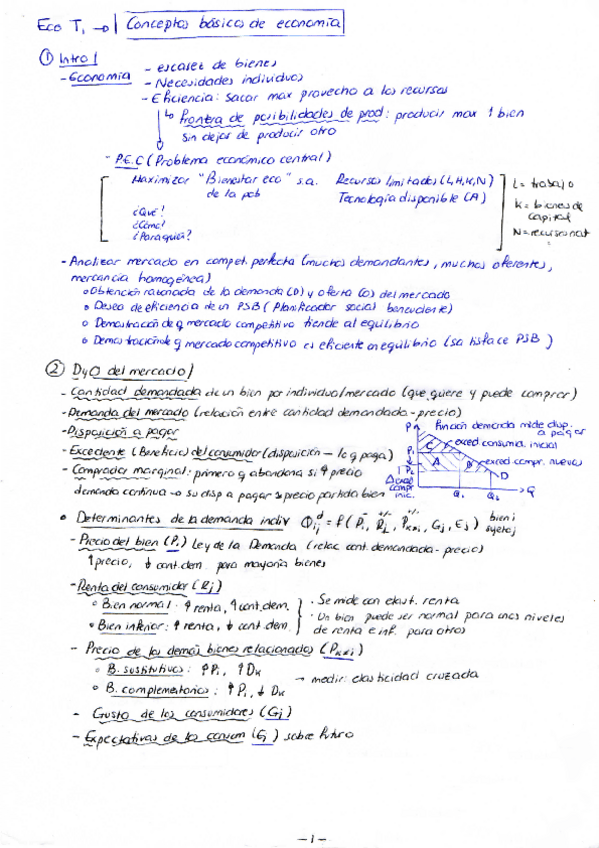 Eco T₁ → Conceptos básicos de economía
① Intro/
- Economía - escasez de bienes
- Necesidades individuos
- Eficiencia: sacar max provecho a los recursos
↳ Frontera de posibilidades de prod: producir max 1 bien
sin dejar de producir otro
- P.E.C (Problema económico central)
Maximizar "Bienestar eco" s.a. Recursos limitados (L,H,K,N)
de la pob Tecnología disponible (A)
¿Qué?
¿Cómo?
¿Para quién?
L = trabajo
K = bienes de
capital
N = recursos nat
- Analizar mercado en compet. perfecta (muchos demandantes, muchos oferentes,
mercancia homogénea)
• Obtención razonada de la demanda (D) y oferta (O) del mercado
• Deseo de eficiencia de un PSB (Planificador social benevolente)
• Demostración de q mercado competitivo tiende al equilibrio
• Demostración de q mercado competitivo es eficiente en equilibrio (satisface PSB)
② D y O del mercado/
- Cantidad demandada de un bien por individuo/mercado (que quiere y puede comprar)
- Demanda del mercado (relación entre cantidad demandada - precio)
- Disposición a pagar
- Excedente (Beneficio) del consumidor (disposición - lo q paga)
- Comprador marginal: primero q abandona si ↑ precio
demanda continua → su disp a pagar = precio partida bien
P Función demanda mide disp.
a pagar
C exced consumid. inicial
P₁
A B exced compr. nuevos
P₂
Δ exced
compr
inic.
D
Q₁ Q₂ Q
• Determinantes de la demanda indiv Qᵢⱼᵈ = f (Pᵢ⁻, Rⱼ⁺/⁻, Pₖ≠ᵢ⁺/⁻, Gⱼ, Eⱼ) bien i
sujeto j
- Precio del bien (Pᵢ) Ley de la Demanda (relac cant. demandada - precio)
↑ precio, ↓ cant. dem. para mayoría bienes
- Renta del consumidor (Rⱼ)
• Bien normal: ↑ renta, ↑ cant. dem.
• Bien inferior: ↑ renta, ↓ cant. dem.
· Se mide con elast. renta
· Un bien puede ser normal para unos niveles
de renta e inf. para otros
- Precio de los demás bienes relacionados (Pₖ≠ᵢ)
• B. sustitutivos: ↑ Pᵢ, ↑ Dₖ
• B. complementarios: ↑ Pᵢ, ↓ Dₖ
→ medir: elasticidad cruzada
- Gusto de los consumidores (Gⱼ)
- Expectativas de los consum (Eⱼ) sobre futuro
- 1 -